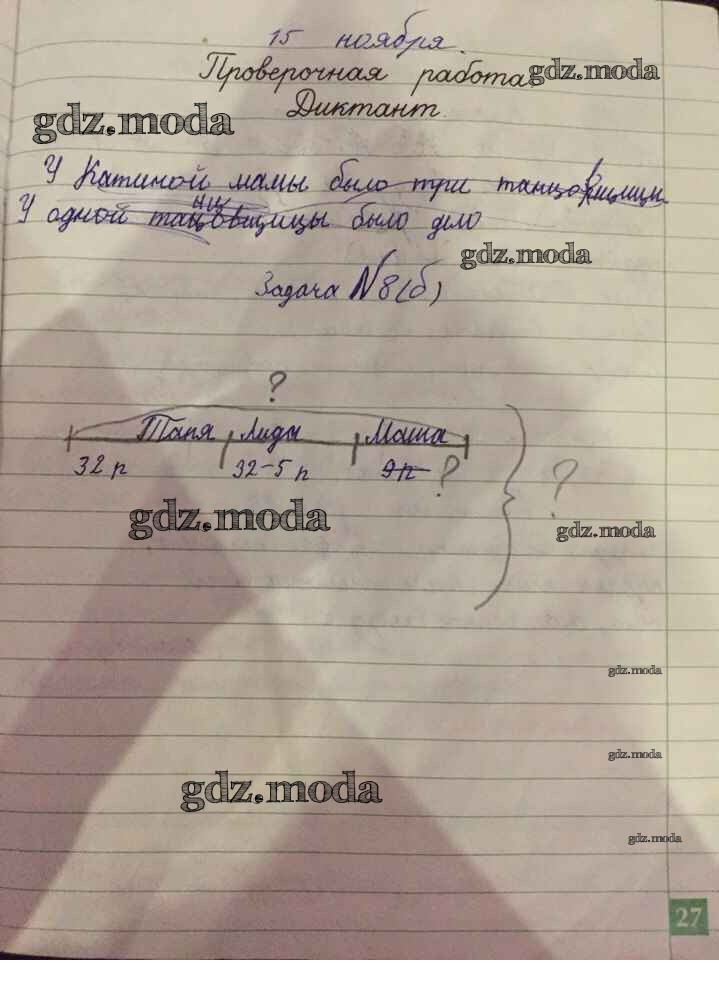 15 ноября.
Проверочная работа.
gdz.moda
Диктант.
gdz.moda
У Катиной мамы было три танцовщицы.
У одной танцовщицы было дело
gdz.moda
Задача №8(б)
?
Таня Лиды Маша
32 р 32-5 р 9 р ?
?
gdz.moda
gdz.moda
gdz.moda
gdz.moda
gdz.moda
gdz.moda
27